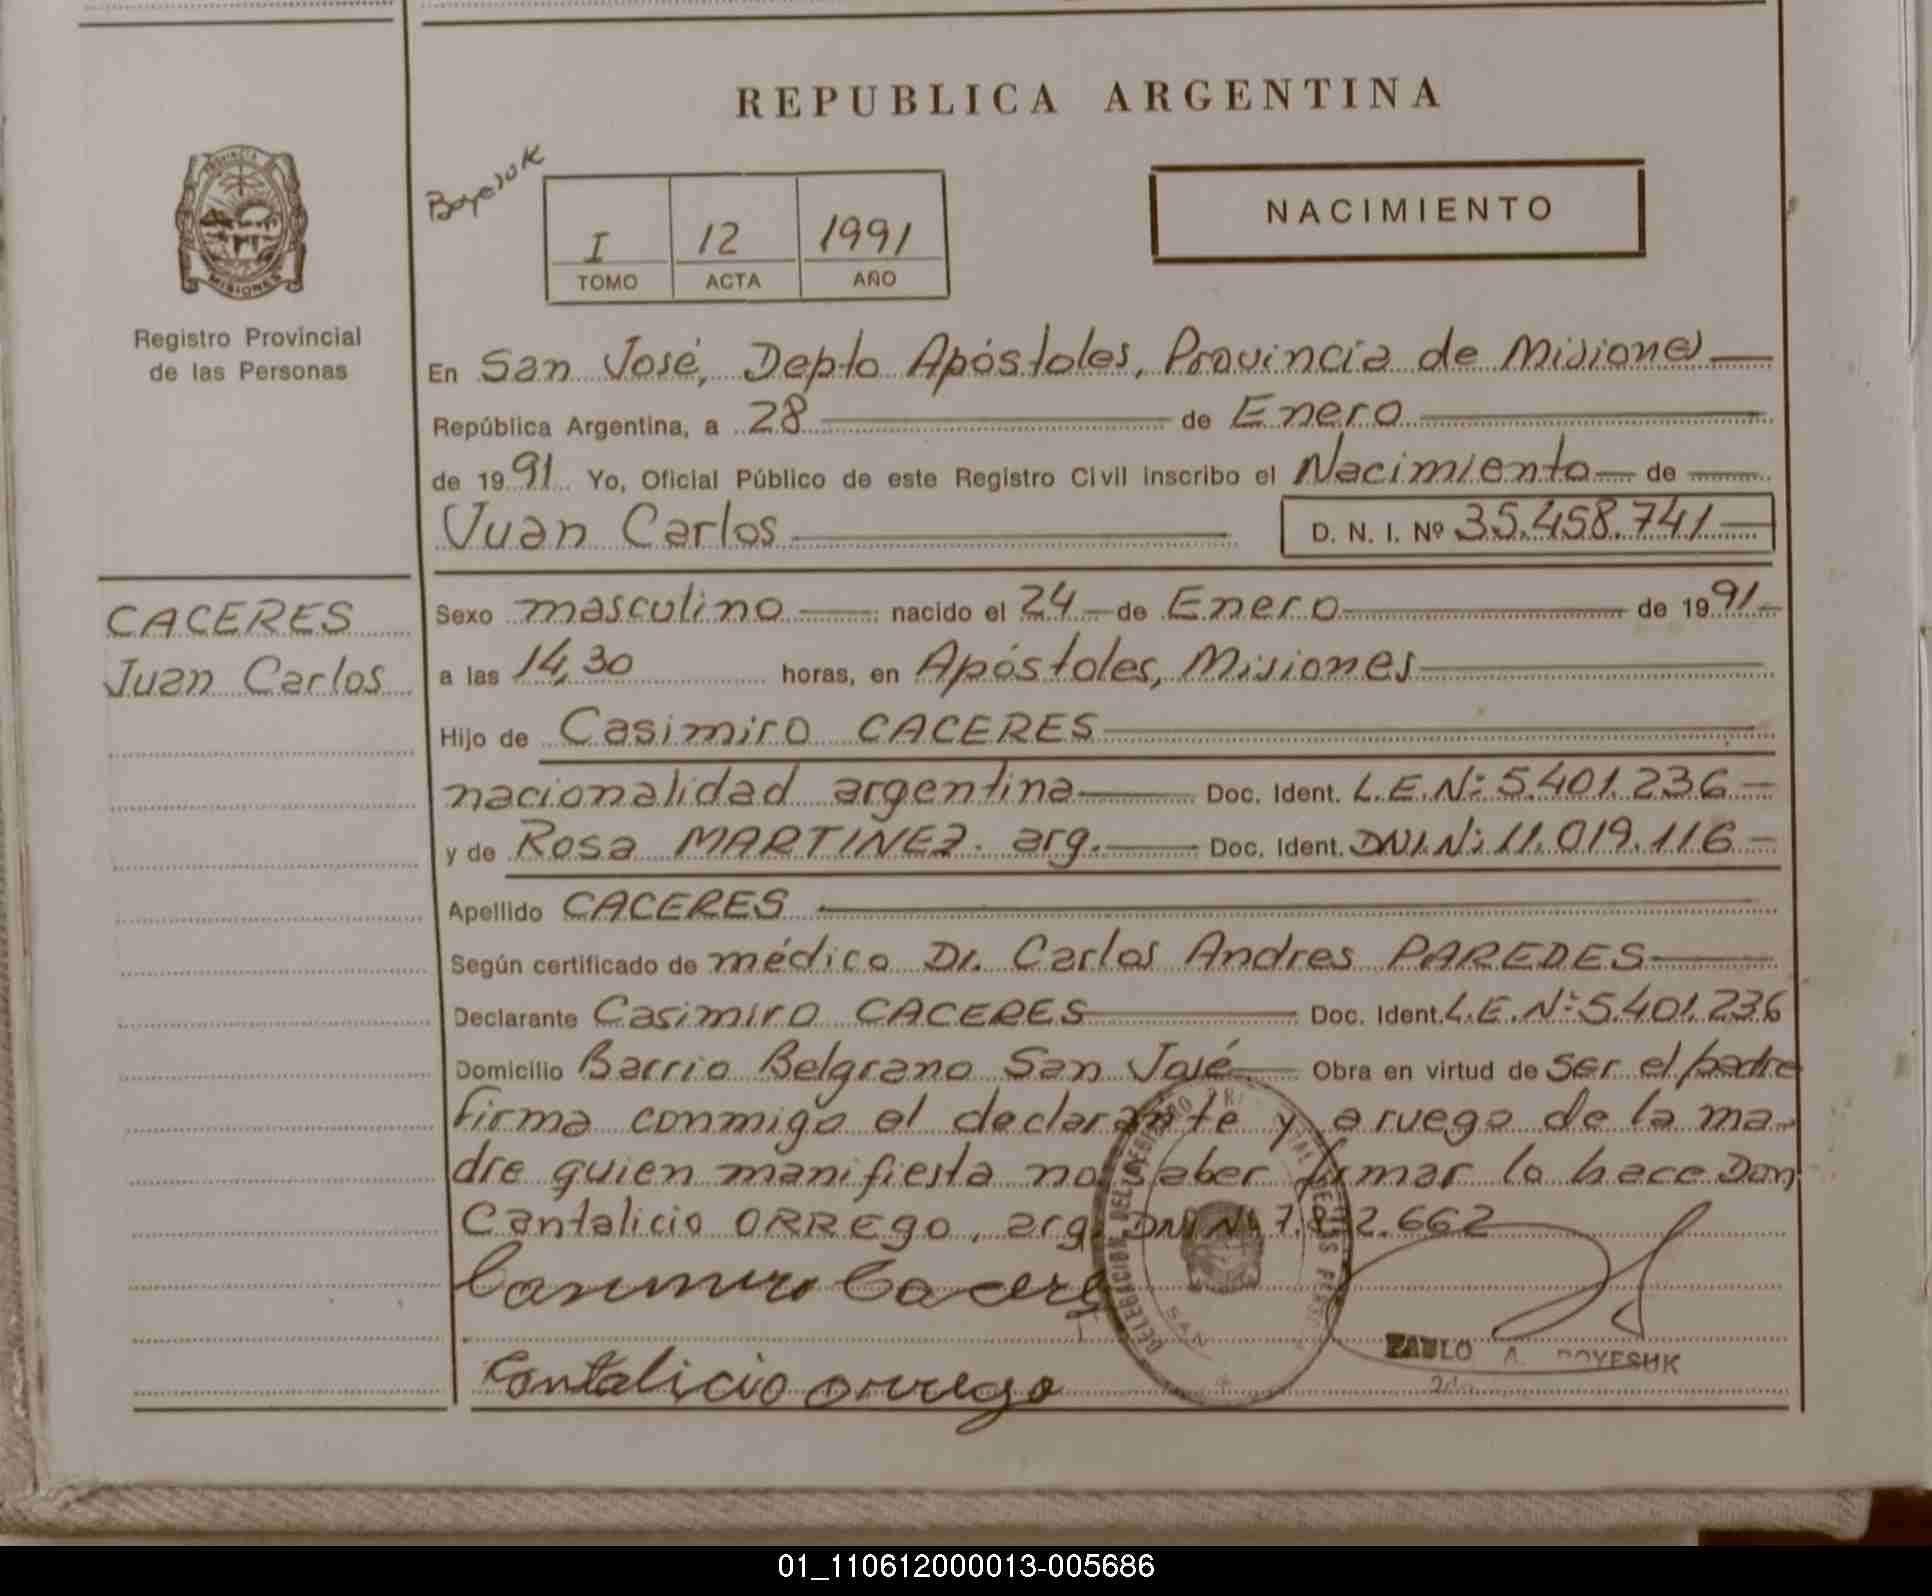 REPUBLICA ARGENTINA
PROVINCIA
MISIONES
Registro Provincial
de las Personas
Boyesuk
I 12 1991
TOMO ACTA AÑO
NACIMIENTO
En San José, Depto Apóstoles, Provincia de Misiones
República Argentina, a 28 de Enero
de 1991 Yo, Oficial Público de este Registro Civil inscribo el Nacimiento de
Juan Carlos D. N. I. Nº 35.458.741
CACERES
Juan Carlos
Sexo masculino nacido el 24 de Enero de 1991
a las 14,30 horas, en Apóstoles, Misiones
Hijo de Casimiro CACERES
nacionalidad argentina Doc. Ident. L.E.Nº 5.401.236
y de Rosa MARTINEZ. arg. Doc. Ident. DNI.Nº 11.019.116
Apellido CACERES
Según certificado de médico Dr. Carlos Andres PAREDES
Declarante Casimiro CACERES Doc. Ident. L.E.Nº 5.401.236
Domicilio Barrio Belgrano San José Obra en virtud de ser el padre
firma conmigo el declarante y a ruego de la ma-
dre quien manifiesta no saber firmar lo hace Don
Cantalicio ORREGO, arg. DNI Nº 7. 2.662
Casimiro Cacere
DELEGACION DEL REGISTRO
SAN
PABLO A. BOYESUK
Cantalicio orrego
01_110612000013-005686